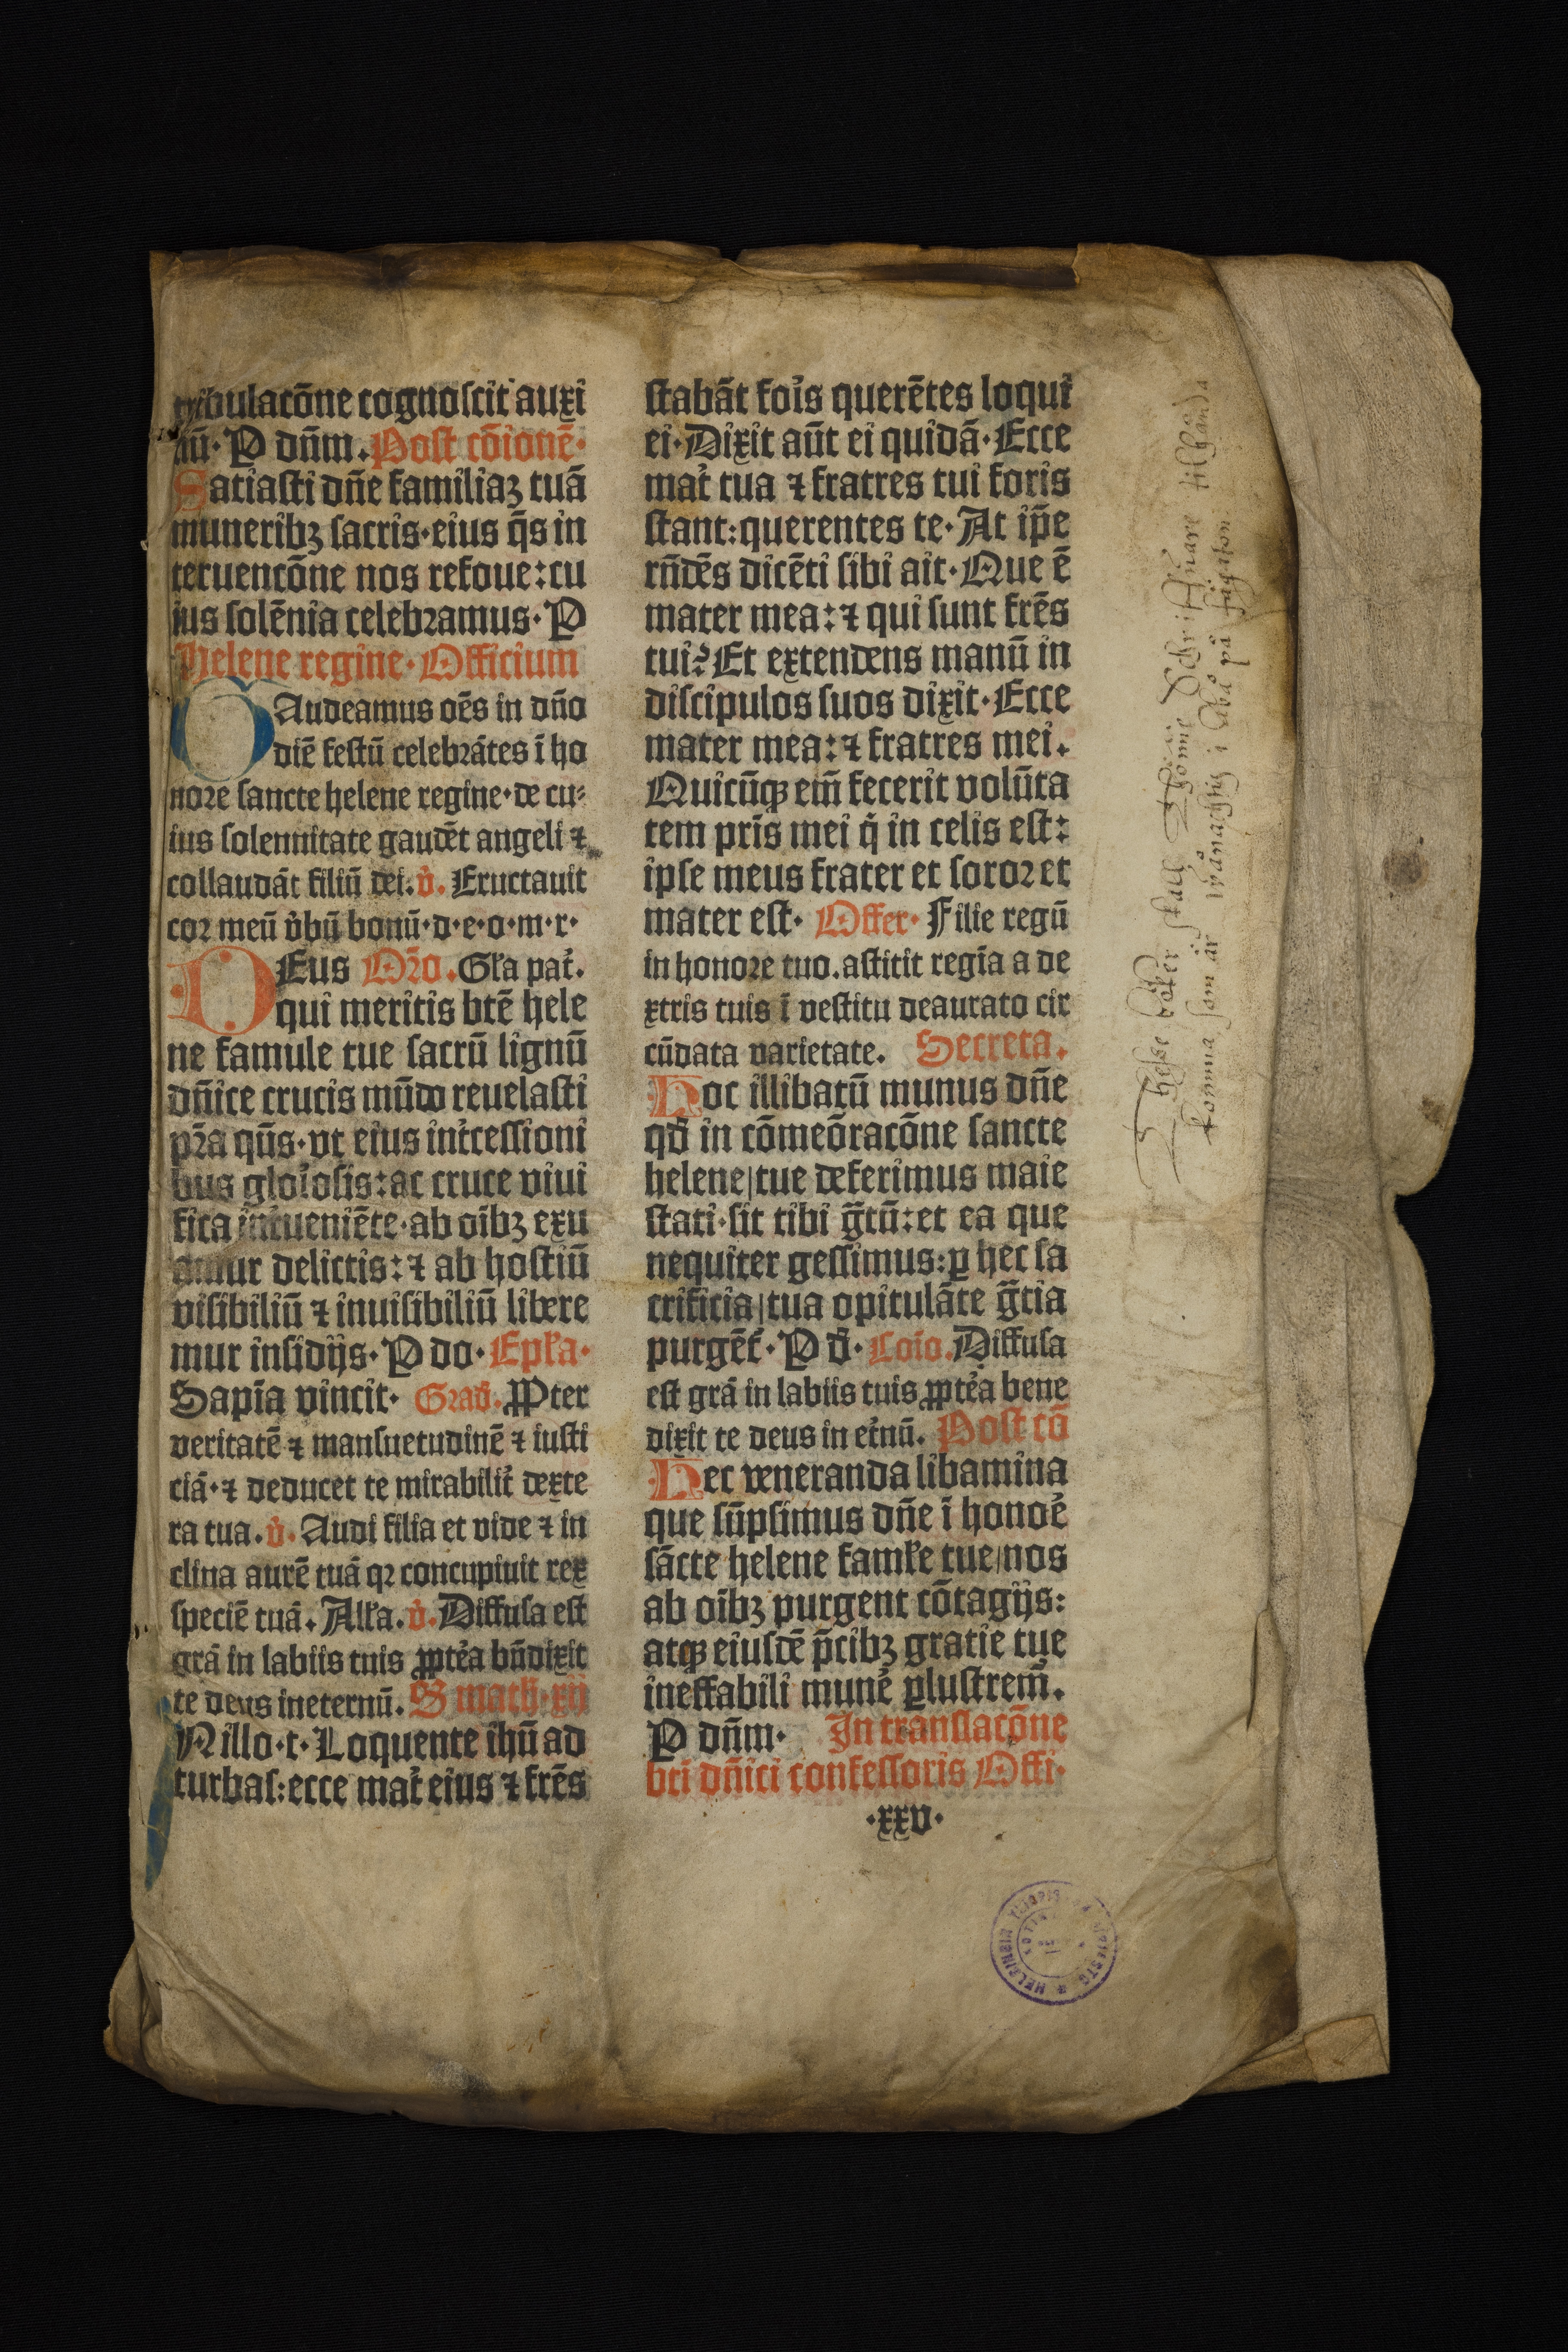 tribulacōne cognoscit auxi
liū· P dn̄m. Post cōionē·
Satiasti dn̄e familiaꝫ tuā
muneribꝫ sacris·eius q̄s in
teruencōne nos refoue:cu
ius solēnia celebramus· P
Helene regine· Officium
GAudeamus oēs in dn̄o
diē festū celebrātes ī ho
nore sancte helene regine·de cu⸗
ius solennitate gaudēt angeli ⁊
collaudāt filiū dei. v̓. Eructauit
cor meū v̓bū bonū·d·e·o·m·r·
DEus Or̄o. Gła pat̓.
qui meritis btē hele
ne famule tue sacrū lignū
dn̄ice crucis mūdo reuelasti
pr̄a qūs·vt eius int̓cessioni
bus glo̓iosis:ac cruce viui
fica int̓ueniēte·ab oībꝫ exu
amur delictis:⁊ ab hostiū
visibiliū ⁊ inuisibiliū libere
mur insidijs· P do· Epła·
Sapīa vincit· Grad̄. ꝓPter
veritatē ⁊ mansuetudinē ⁊ iusti
ciā·⁊ deducet te mirabilit̓ dexte
ra tua. v̓. Audi filia et vide ⁊ in
clina aurē tuā qꝛ concupiuit rex
speciē tuā. Ałła. v̓. Diffusa est
grā in labiis tuis ꝓpte̓a bn̄dixit
te deus ineternū. S math·xij
IN illo·t· Loquente ih̄u ad
turbas:ecce mat̓ eius ⁊ frēs
stabāt fo̓is querētes loqui
ei·Dixit aūt ei quidā·Ecce
mat̓ tua ⁊ fratres tui foris
stant:querentes te· At ip̄e
rn̄dēs dicēti sibi ait·Que ē
mater mea:⁊ qui sunt frēs
tui? Et extendens manū in
discipulos suos dixit·Ecce
mater mea:⁊ fratres mei.
Quicūqꝫ em̄ fecerit volūta
tem pr̄is mei q̓ in celis est:
ipse meus frater et soror et
mater est· Offer· Filie regū
in honore tuo.astitit regīa a de
xtris tuis ī vestitu deaurato cir
cūdata varietate. Secreta.
Hoc illibatū munus dn̄e
qd̄ in cōmeōracōne sancte
helene/tue deferimus maie
stati·sit tibi g̃tū:et ea que
nequiter gessimus:ꝑ hec sa
crificia/tua opitulāte g̃tia
purgēt̓· P d̄· Coīo. Diffusa
est grā in labiis tuis ꝓpte̓a bene
dixit te deus in et̓nū. Post cō
Hec veneranda libamina
que sūpsimus dn̄e ī hono̓e
sācte helene famłe tue/nos
ab oībꝫ purgent cōtagijs:
atqꝫ eiusdē p̄cibꝫ gratie tue
ineffabili mune̓ ꝑlustrem̄.
P dn̄m· In translacōne
bti dn̄ici confessoris Offi·
·xxv·